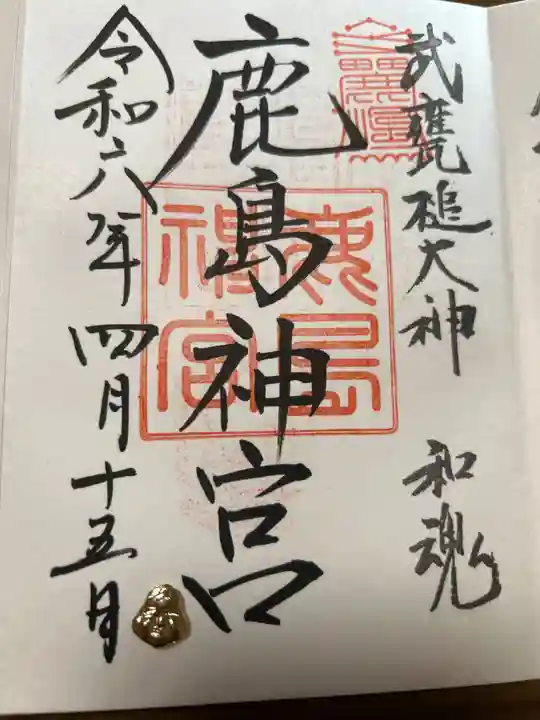 武甕槌大神 和魂
鹿島神宮
鹿島神宮
令和六年四月十五日